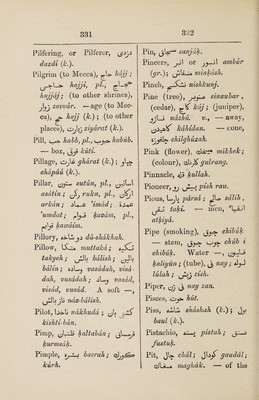 331
Pilfering, or Pilferer, دزدی
duzdí (k.).
Pilgrim (to Mecca), حاج hájj ;
حاجی hájjí, pl., حجاج
hujjáj; (to other shrines),
زوار zavár. — age (to Mec-
ca), حج hajj (k.); (to other
places), زیارت ziyárat (k.).
Pill, حب habb, pl., حبوب habúb.
— box, قوتی kútí.
Pillage, غارت ghárat (k.); چپاو
chápáú (k.).
Pillar, ستون sutún, pl., اساتین
asátín; رکن rukn, pl., ارکان
arkán; عماد 'imád; عمده
'umdat; قوام kuvám, pl.,
قوائم kawáim.
Pillory, دو شاخه dú-shákhah.
Pillow, متکا muttaká; تکیه
takyeh; بالش bálish; بالین
bálín; وساده vasádah, visá-
dah, vusádah; وساد vasád,
visád, vusád. A soft —,
ناز بالش náz-bálish.
Pilot, ناخدا nákhudá; کشتی بان
kishtí-bán.
Pimp, قلتبان kaltabán; قرمساق
kurmsák.
Pimple, بثره basrah; کورک
kúrk.
332
Pin, سنجاق sanják.
Pincers, انبر or انبور ambúr
(gr.); منقاش minkásh.
Pinch, نشکنج nishkunj.
Pine (tree), صنوبر sinaubar,
(cedar), کاج káj; (juniper),
ناژو názhú. v., — away,
کاهیدن káhídan. — cone,
چلغوزه chilghúzah.
Pink (flower), میخک míkhek;
(colour), گلرنگ gulrang.
Pinnacle, قله kullah.
Pioneer, پیش رو písh rau.
Pious, پارسا pársá; صالح sálih,
تقی takí. — men, اتقیا
atkiyá.
Pipe (smoking), چبق chibúk
— stem, چوب چبق chúb i
chibúk. Water —, قلیان
kaliyún; (tube), نای nay; لوله
lúlah; ژیژ zísh.
Piper, نای زن nay zan.
Pisces, حوت hút.
Piss, شاشه sháshah (k.); بول
baul (k.).
Pistachio, پسته pistah; فستق
fustuk.
Pit, چاه cháh; گودال gaudál;
مغاک maghák. — of the